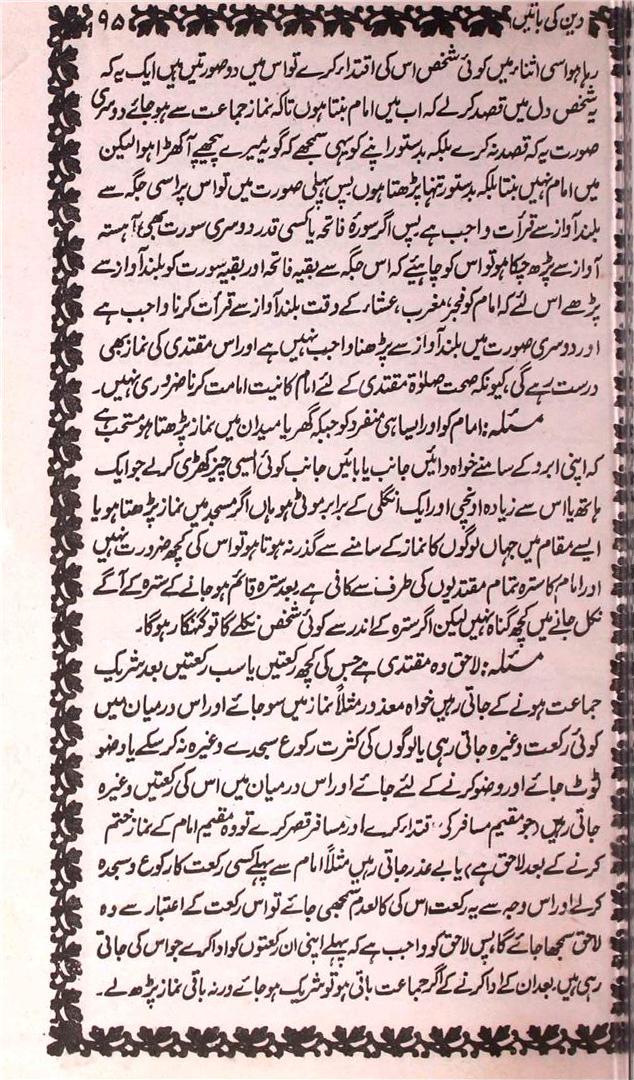 دین کی باتیں ۹۵
رہا ہو اسی اثناء میں کوئی شخص اس کی اقتداء کرے تو اس میں دو صورتیں ہیں ایک یہ کہ
یہ شخص دل میں قصد کرلے کہ اب میں امام بنتا ہوں تاکہ نماز جماعت سے ہو جائے دوسری
صورت یہ کہ قصد نہ کرے بلکہ بدستور اپنے کو یہی سمجھے کہ گو یہ میرے پیچھے آ کھڑا ہوا لیکن
میں امام نہیں بنتا بلکہ بدستور تنہا پڑھتا ہوں پس پہلی صورت میں تو اس پر اسی جگہ سے
بلند آواز سے قرأت واجب ہے پس اگر سورۂ فاتحہ یا کسی قدر دوسری سورت بھی آہستہ
آواز سے پڑھ چکا ہو تو اس کو چاہیئے کہ اس جگہ سے بقیہ فاتحہ اور بقیہ سورت کو بلند آواز سے
پڑھے اس لئے کہ امام کو فجر، مغرب، عشاء کے وقت بلند آواز سے قرأت کرنا واجب ہے
اور دوسری صورت میں بلند آواز سے پڑھنا واجب نہیں ہے اور اس مقتدی کی نماز بھی
درست رہے گی، کیونکہ صحت صلوٰۃ مقتدی کے لئے امام کا نیت امامت کرنا ضروری نہیں۔
مسئلہ: امام کو اور ایسا ہی منفرد کو جبکہ گھر یا میدان میں نماز پڑھتا ہو مستحب ہے
کہ اپنی ابرو کے سامنے خواہ دائیں جانب یا بائیں جانب کوئی ایسی چیز کھڑی کرلے جو ایک
ہاتھ یا اس سے زیادہ اونچی اور ایک انگلی کے برابر موٹی ہو ہاں اگر مسجد میں نماز پڑھتا ہو یا
ایسے مقام میں جہاں لوگوں کا نماز کے سامنے سے گذر نہ ہوتا ہو تو اس کی کچھ ضرورت نہیں
اور امام کا سترہ تمام مقتدیوں کی طرف سے کافی ہے بعد سترہ قائم ہو جانے کے سترہ کے آگے
نکل جانے میں کچھ گناہ نہیں لیکن اگر سترہ کے اندر سے کوئی شخص نکلے گا تو گنہگار ہوگا۔
مسئلہ: لاحق وہ مقتدی ہے جس کی کچھ رکعتیں یا سب رکعتیں بعد شریک
جماعت ہونے کے جاتی رہیں خواہ معذور مثلاً نماز میں سو جائے اور اس درمیان میں
کوئی رکعت وغیرہ جاتی رہی یا لوگوں کی کثرت رکوع سجدے وغیرہ نہ کر سکے یا وضو
ٹوٹ جائے اور وضو کرنے کے لئے جائے اور اس درمیان میں اس کی رکعتیں وغیرہ
جاتی رہیں (جو مقیم مسافر کی اقتداء کرے اور مسافر قصر کرے تو وہ مقیم امام کے نماز ختم
کرنے کے بعد لاحق ہے) یا بے عذر جاتی رہیں مثلاً امام سے پہلے کسی رکعت کا رکوع و سجدہ
کرلے اور اس وجہ سے یہ رکعت اس کی کالعدم سمجھی جائے تو اس رکعت کے اعتبار سے وہ
لاحق سمجھا جائے گا، پس لاحق کو واجب ہے کہ پہلے اپنی ان رکعتوں کو ادا کرے جو اس کی جاتی
رہی ہیں، بعد ان کے ادا کرنے کے اگر جماعت باقی ہو تو شریک ہو جائے ورنہ باقی نماز پڑھ لے۔